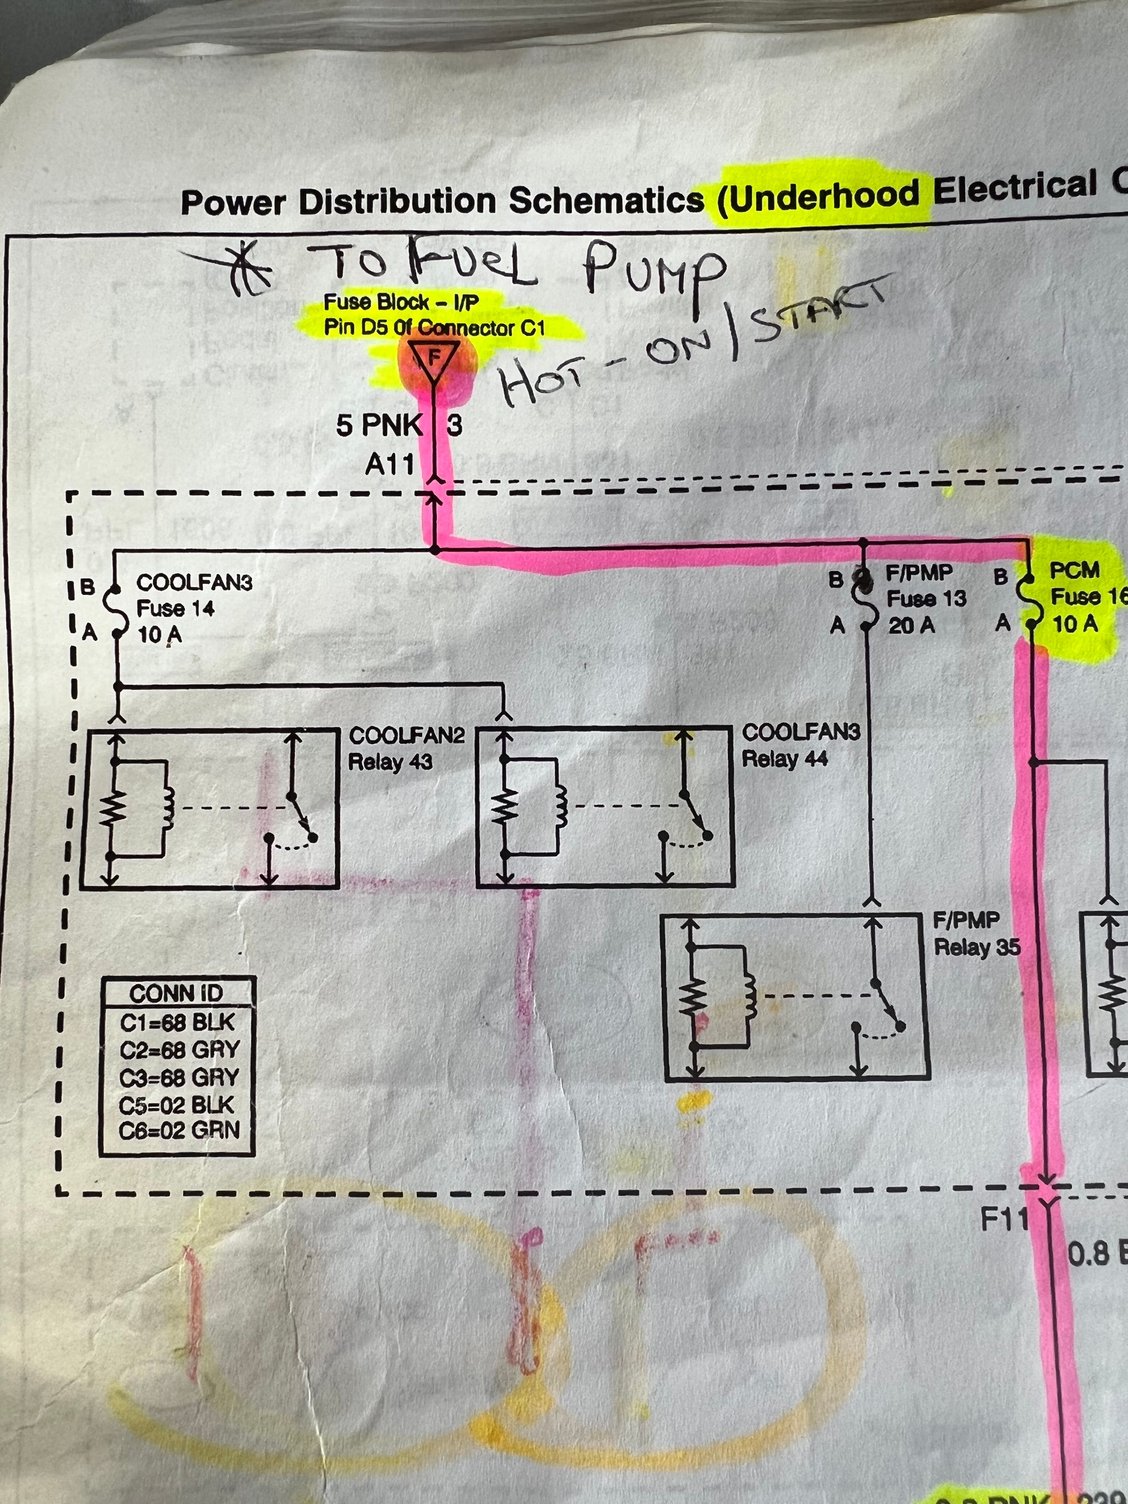 Power Distribution Schematics (Underhood Electrical
* TO FUEL PUMP
HOT - ON / START
Fuse Block – I/P
Pin D5 Of Connector C1
F
5 PNK 3
A11
B COOLFAN3
Fuse 14
A 10 A
B F/PMP
Fuse 13
A 20 A
B PCM
Fuse 16
A 10 A
COOLFAN2
Relay 43
COOLFAN3
Relay 44
F/PMP
Relay 35
CONN ID
C1=68 BLK
C2=68 GRY
C3=68 GRY
C5=02 BLK
C6=02 GRN
F11
0.8
PNK